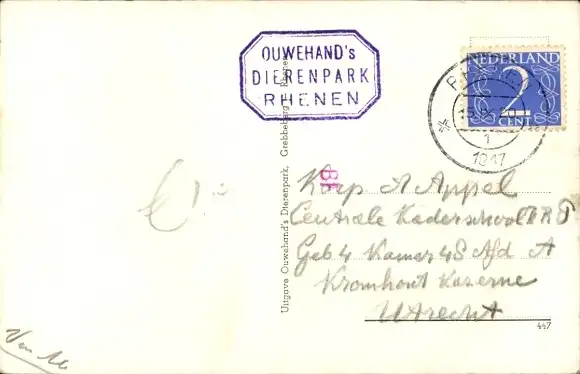 OUWEHAND's
DIERENPARK
RHENEN
NEDERLAND
2
CENT
1
1947
Uitgave Ouwehand's Dierenpark, Grebbeberg, Rhenen
Korp A Appel
Centrale Kaderschool
Geb 4 Kamer 48 Afd A
Kromhout Kazerne
Utrecht
447